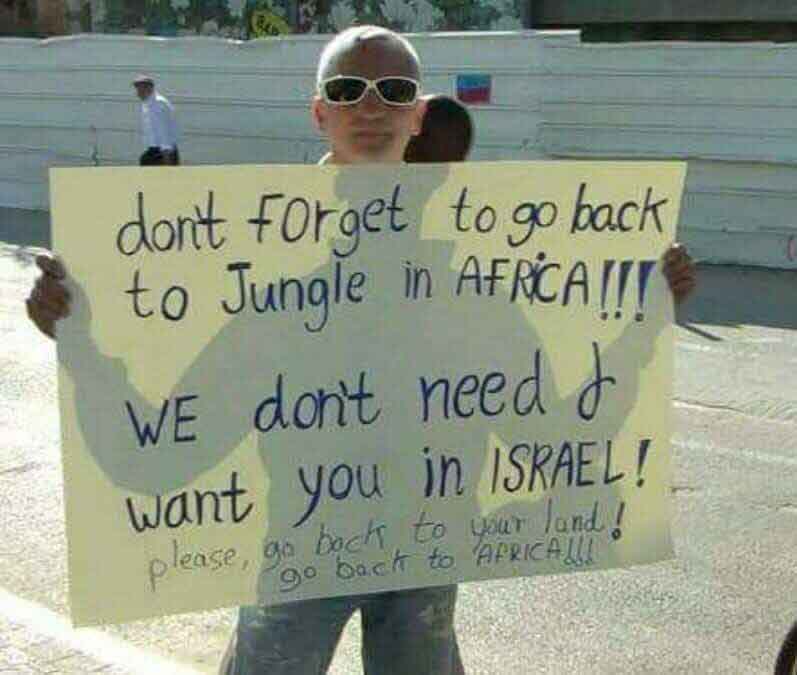 don't FORget to go back
to Jungle in AFRiCA!!!
WE don't need &
want you in ISRAEL!
please, go back to your land!
go back to AFRICA!!!